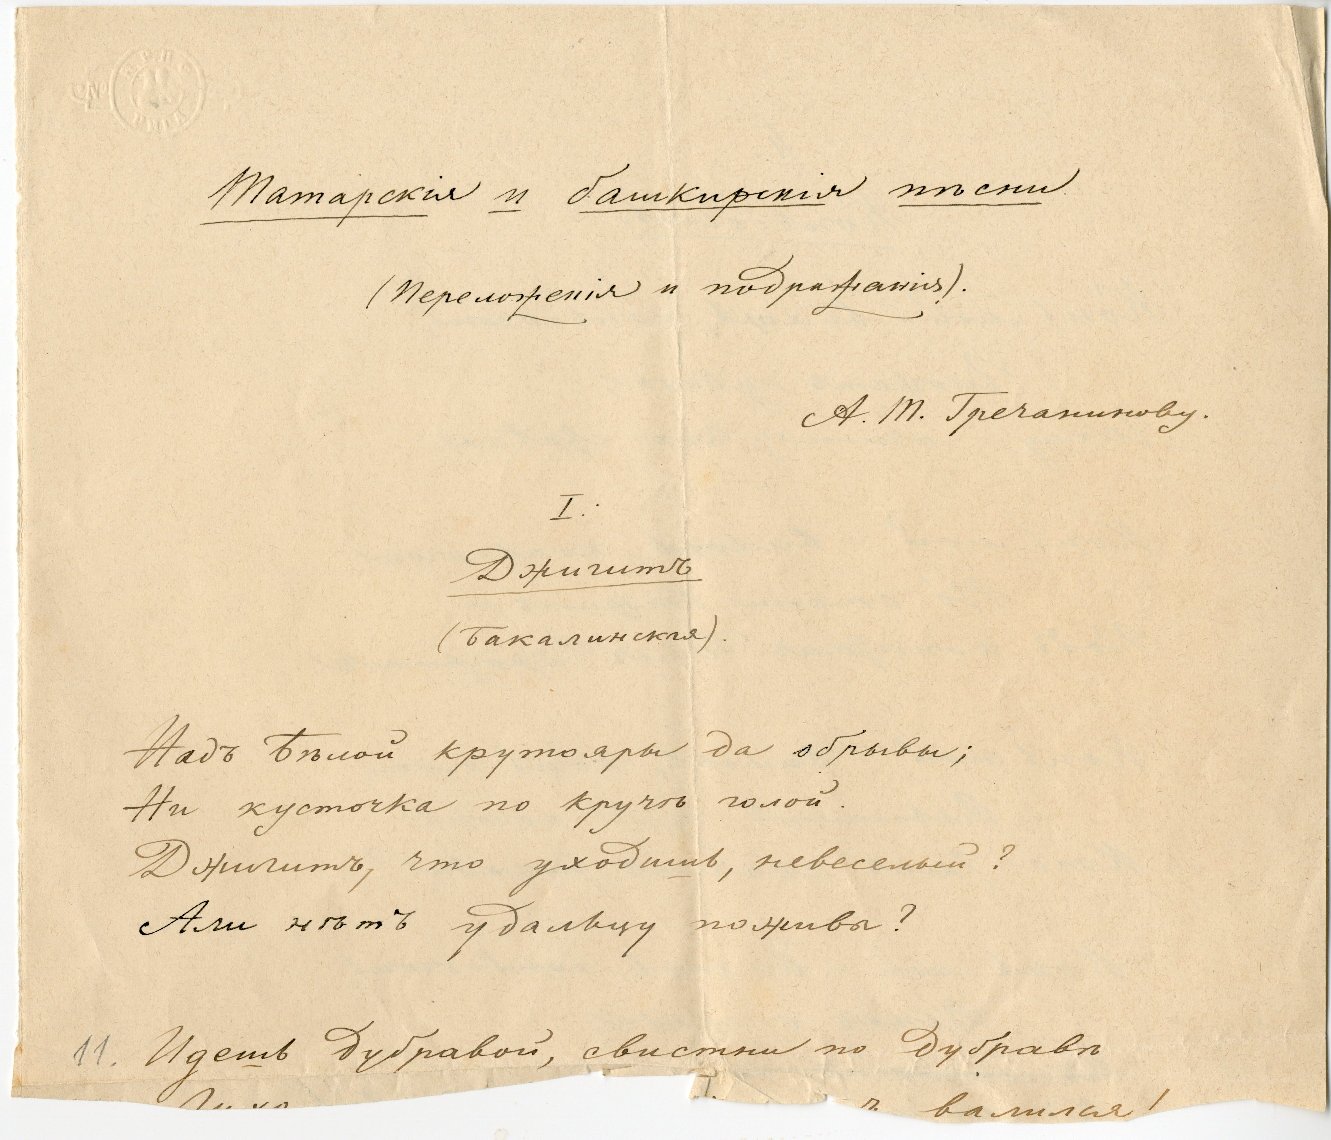 Татарскія и башкирскія пѣсни
(Переложенія и подражанія).
А. Т. Гречанинову.
I.
Джигитъ
(Бакалинская).
Надъ Бѣлой крутояры да обрывы;
Ни кусточка по кручѣ голой.
Джигитъ, что уходишь, невеселый?
Али нѣтъ удальцу поживы?
11. Идешь дубравой, свистни по дубравѣ
валился!